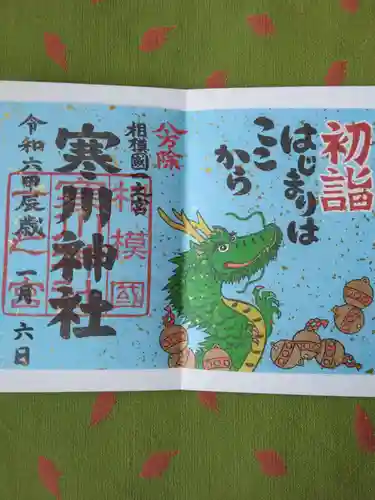 初詣
はじまりは
ここ
から
八方除
相模國一之宮
寒川神社
相模國
一之宮
令和六甲辰歳
一月六日